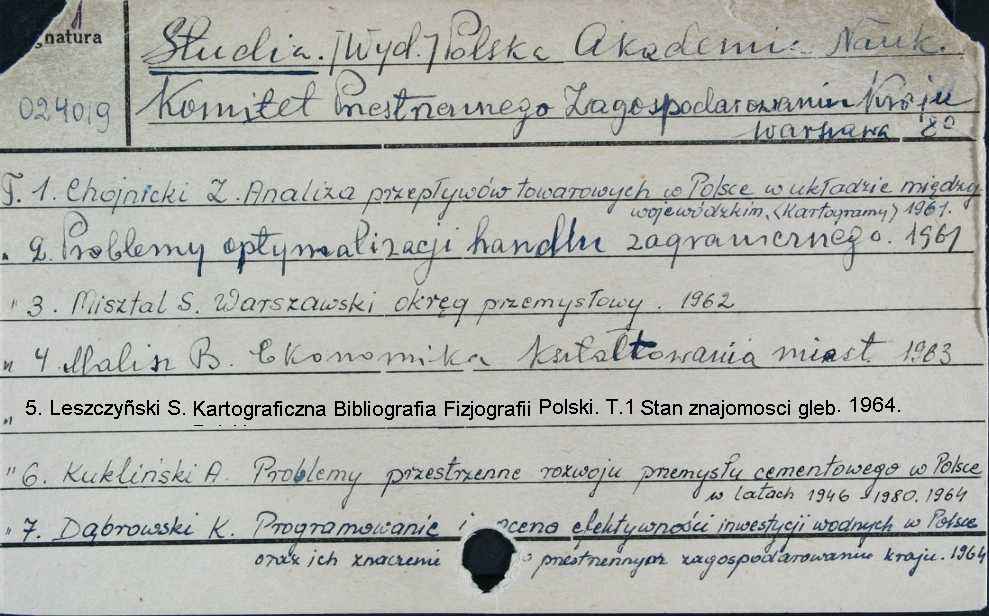 gnatura
Studia. [Wyd.] Polska Akademia Nauk.
024019
Komitet Przestrzennego Zagospodarowania Kraju
Warszawa 8°
T. 1. Chojnicki Z. Analiza przepływów towarowych w Polsce w układzie między
wojewódzkim. (Kartogramy) 1961.
" 2. Problemy optymalizacji handlu zagranicznego. 1961
" 3. Misztal S. Warszawski okręg przemysłowy. 1962
" 4. Malisz B. Ekonomika kształtowania miast 1963
" 5. Leszczyñski S. Kartograficzna Bibliografia Fizjografii Polski. T.1 Stan znajomosci gleb. 1964.
" 6. Kukliński A. Problemy przestrzenne rozwoju przemysłu cementowego w Polsce
w latach 1946 - 1980. 1964
" 7. Dąbrowski K. Programowanie i ocena efektywności inwestycji wodnych w Polsce
oraz ich znaczeni przestrzennym zagospodarowaniu kraju. 1964